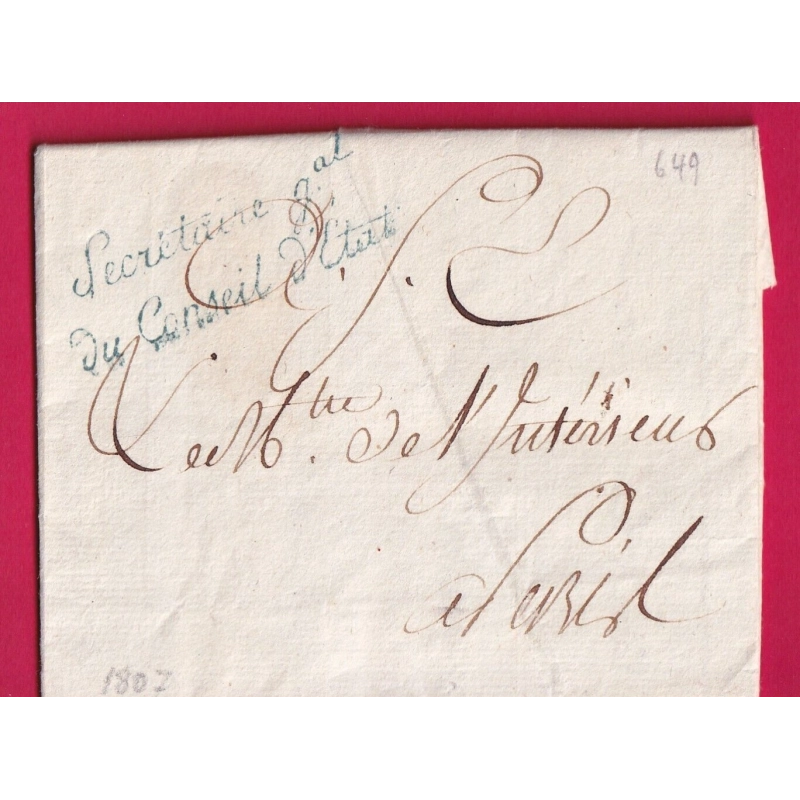 649
Secrétaire g.al
du Conseil d'Etat
Le M.tre de l'Intérieur
a Paris
1802